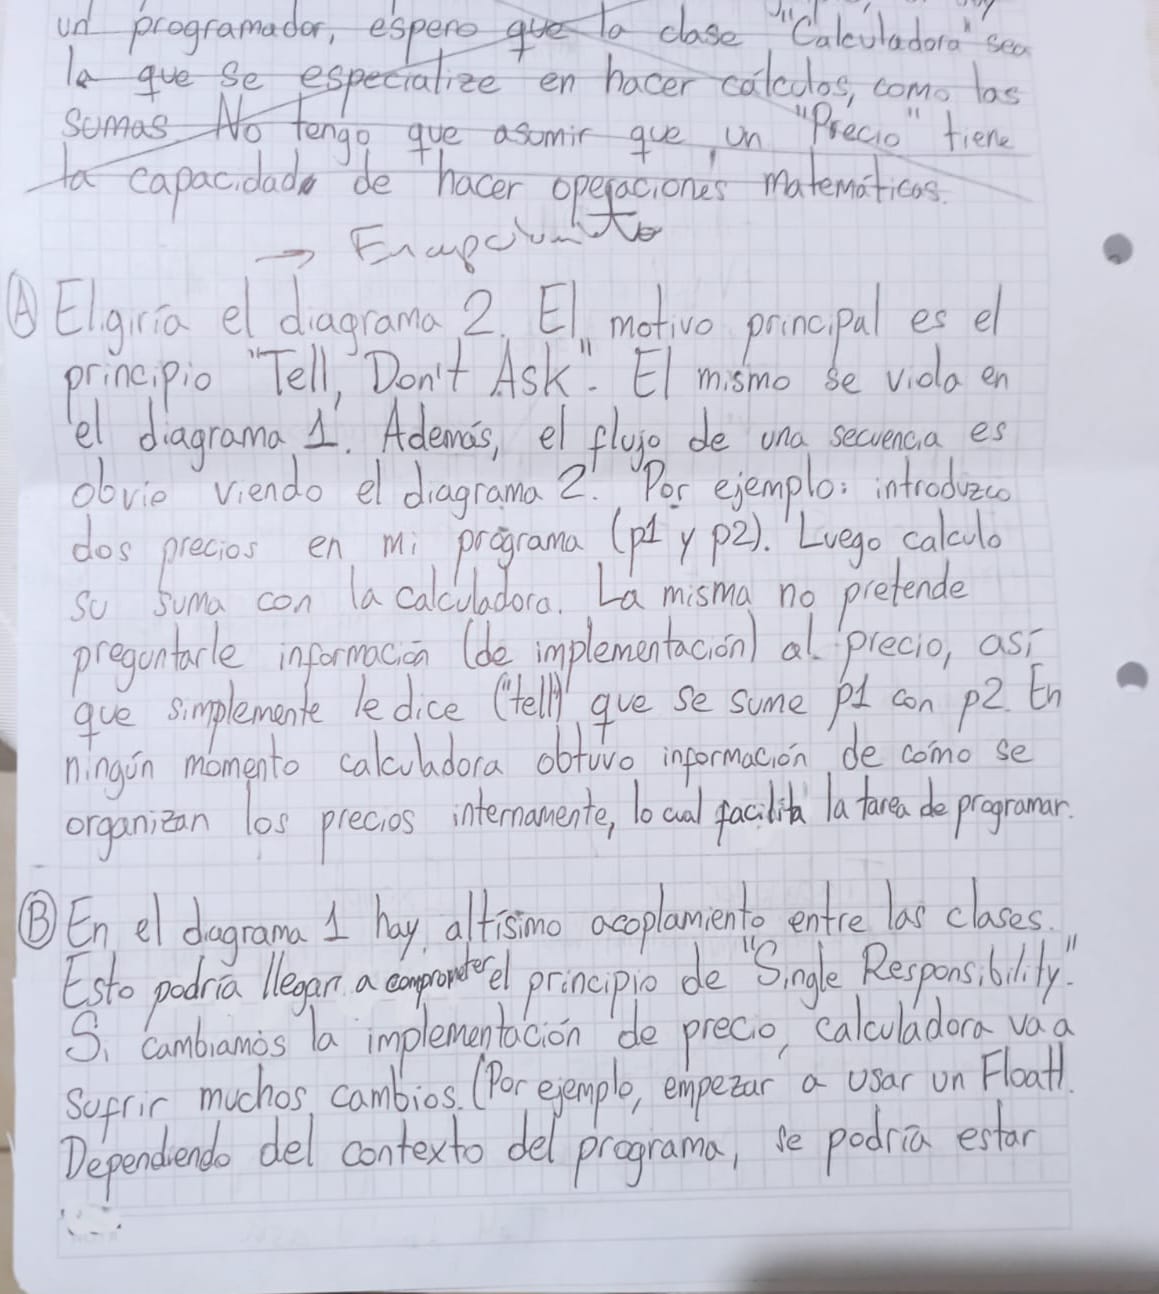 un programador, espero que la clase "Calculadora" sea
la que se especialize en hacer cálculos, como las
sumas No tengo que asumir que un "Precio" tiene
la capacidad de hacer operaciones matemáticas.
→
Ⓐ Elgiría el diagrama 2. El motivo principal es el
principio "Tell, Don't Ask". El mismo se viola en
el diagrama 1. Además, el flujo de una secuencia es
obvio viendo el diagrama 2. Por ejemplo: introduzco
dos precios en mi programa (p1 y p2). Luego calculo
su suma con la calculadora. La misma no pretende
preguntarle información (de implementación) al precio, así
que simplemente le dice ("tell") que se sume p1 con p2. En
ningún momento calculadora obtuvo información de cómo se
organizan los precios internamente, lo cual facilita la tarea de programar.
Ⓑ En el diagrama 1 hay altísimo acoplamiento entre las clases.
Esto podría llegar a comprometer el principio de "Single Responsibility".
Si cambiamos la implementación de precio, calculadora va a
sufrir muchos cambios. (Por ejemplo, empezar a usar un Float).
Dependiendo del contexto del programa, se podría estar